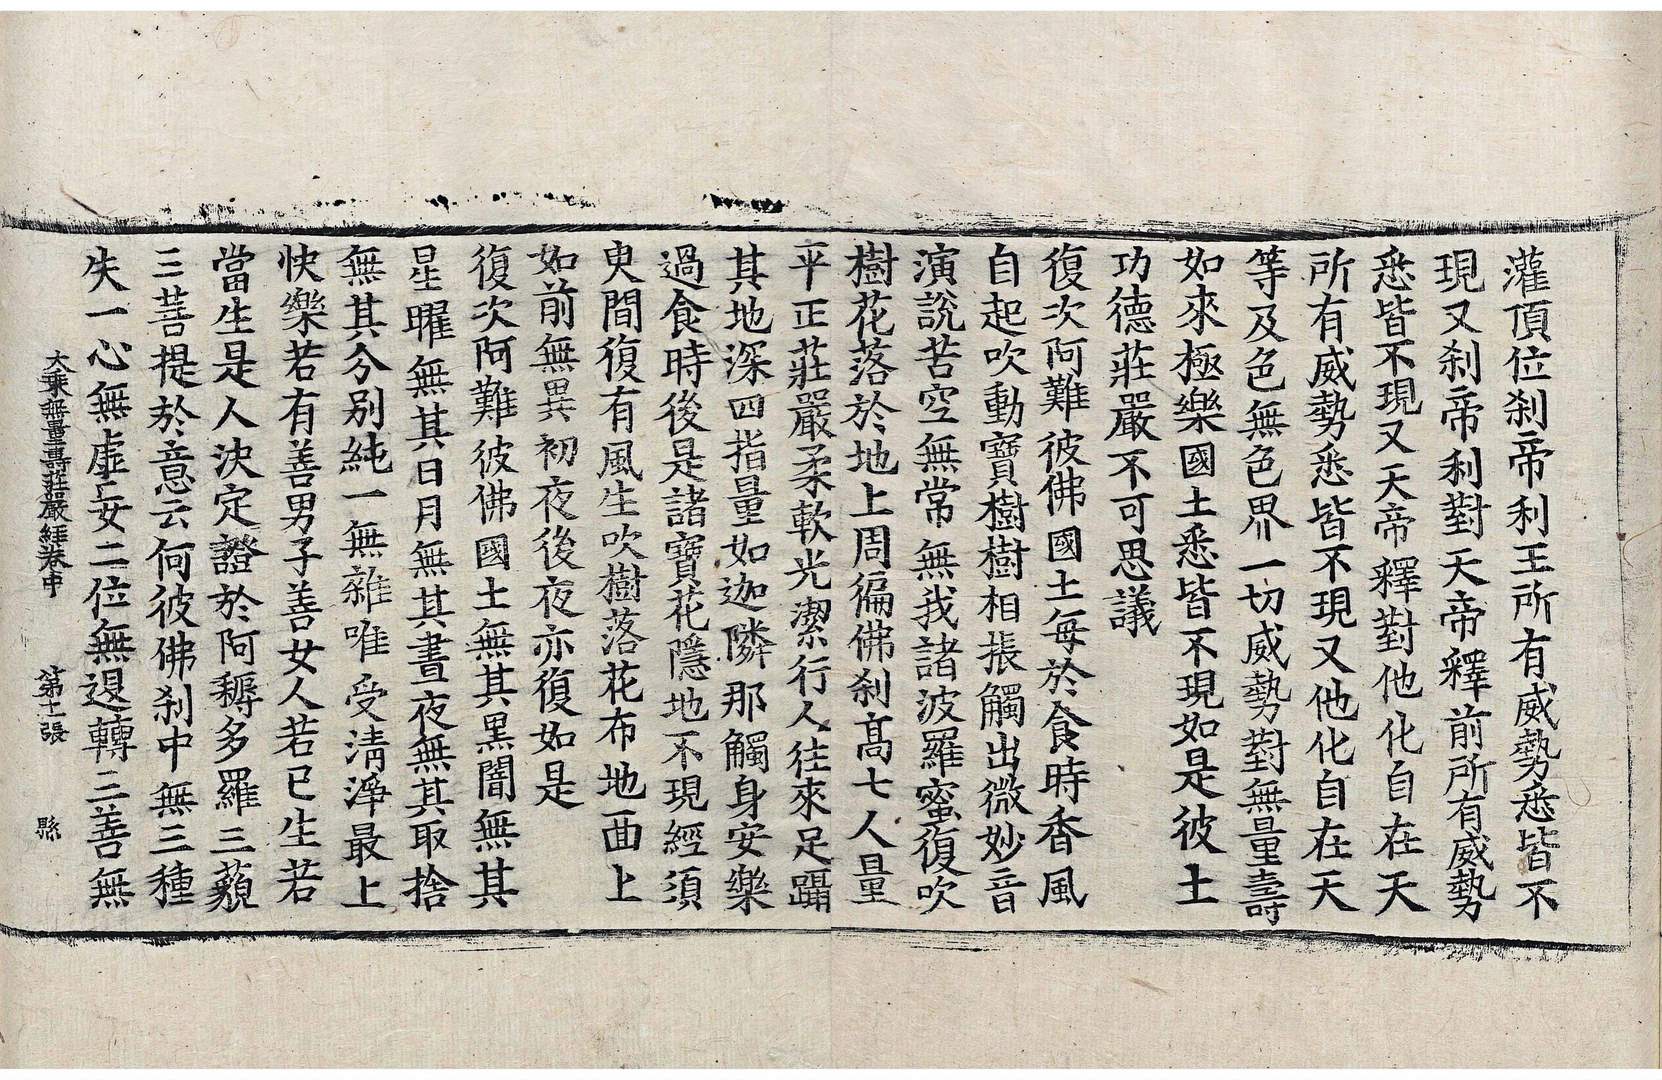 灌頂位刹帝利王所有威勢悉皆不
現又刹帝利對天帝釋前所有威勢
悉皆不現又天帝釋對他化自在天
所有威勢悉皆不現又他化自在天
等及色無色界一切威勢對無量壽
如來極樂國土悉皆不現如是彼土
功德莊嚴不可思議
復次阿難彼佛國土每於食時香風
自起吹動寶樹樹相掁觸出微妙音
演說苦空無常無我諸波羅蜜復吹
樹花落於地上周徧佛刹髙七人量
平正莊嚴柔軟光潔行人往來足躡
其地深四指量如迦隣那觸身安樂
過食時後是諸寶花隱地不現經須
臾間復有風生吹樹落花布地面上
如前無異初夜後夜亦復如是
復次阿難彼佛國土無其黑闇無其
星曜無其日月無其晝夜無其取捨
無其分別純一無雜唯受淸淨最上
快樂若有善男子善女人若已生若
當生是人決定證於阿耨多羅三藐
三菩提於意云何彼佛刹中無三種
失一心無虛妄二位無退轉三善無
大乘無量壽莊嚴經卷中 第十一張 縣